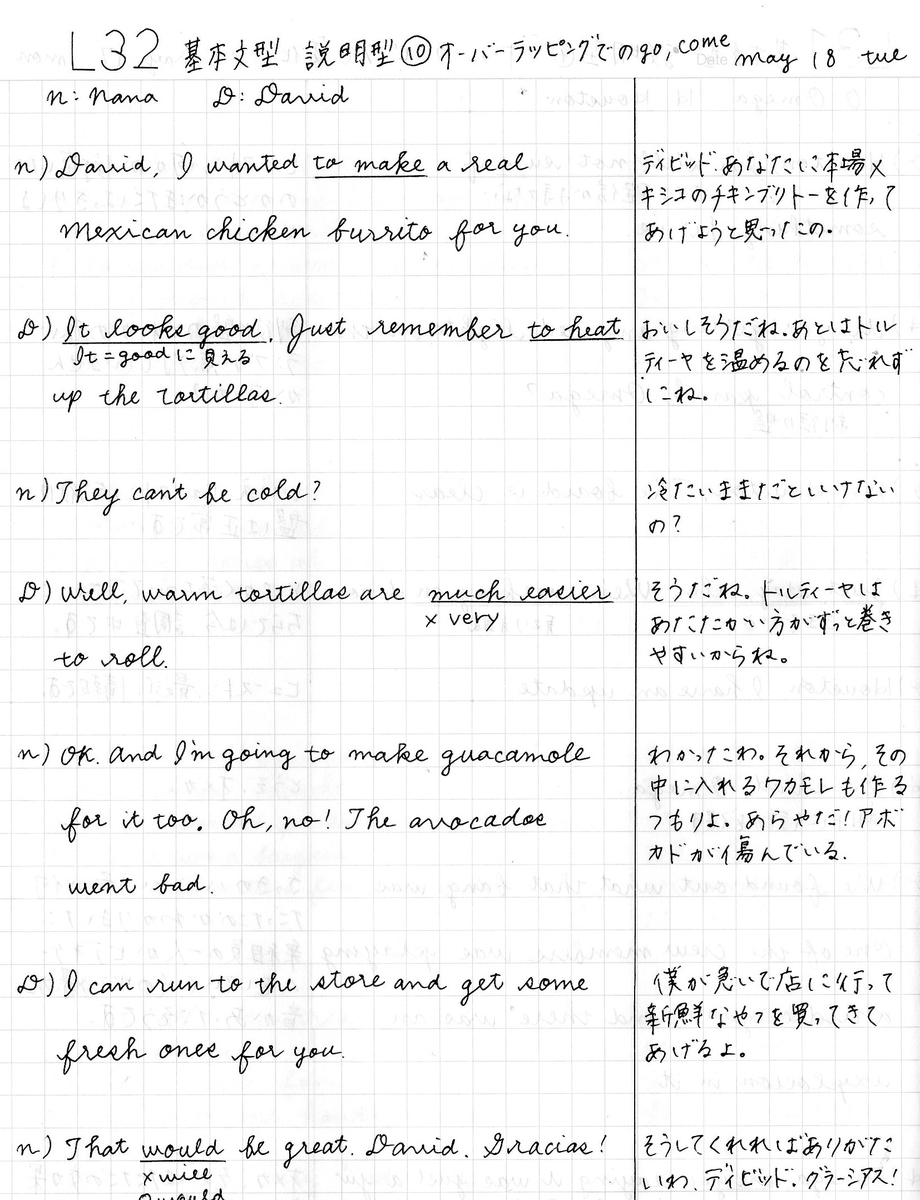 L32 基本文型 説明型⑩オーバーラッピングでのgo, come
Date may 18 tue
n: nana D: David
n) David, I wanted to make a real
mexican chicken burrito for you.
デイビッド、あなたに本場メ
キシコのチキンブリトーを作って
あげようと思ったの。
D) It looks good. Just remember to heat
It=goodに見える
up the tortillas.
おいしそうだね。あとはトル
ティーヤを温めるのを忘れず
にね。
n) They can't be cold?
冷たいままだといけない
の?
D) Well, warm tortillas are much easier
× very
to roll.
そうだね。トルティーヤは
あたたかい方がずっと巻き
やすいからね。
n) OK. And I'm going to make guacamole
for it too. Oh, no! The avocados
went bad.
わかったわ。それから、その
中に入れるワカモレも作る
つもりよ。あらやだ!アボ
カドが傷んでいる。
D) I can run to the store and get some
fresh ones for you.
僕が急いで店に行って
新鮮なやつを買ってきて
あげるよ。
n) That would be great. David. Gracias!
× will
○ would
そうしてくれればありがた
いわ、デイビッド。グラーシアス!